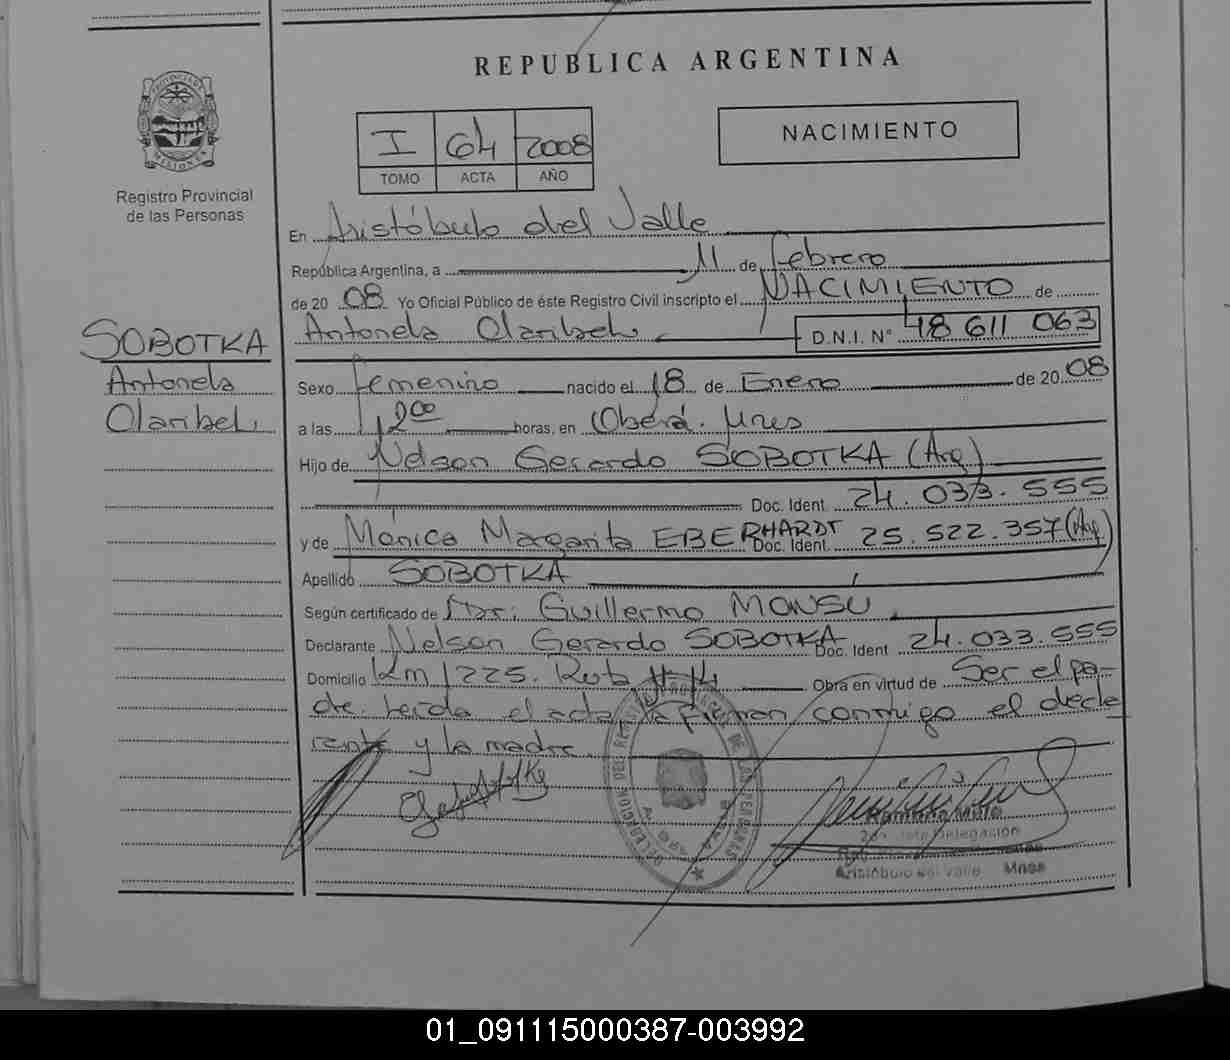 REPUBLICA ARGENTINA
I 64 2008
TOMO ACTA AÑO
NACIMIENTO
PROVINCIA DE MISIONES
Registro Provincial
de las Personas
SOBOTKA
Antonela
Claribel.
En Aristóbulo del Valle
República Argentina, a 11 de febrero
de 20 08 Yo Oficial Público de éste Registro Civil inscripto el NACIMIENTO de
Antonela Claribel. D.N.I. N° 48 611 063
Sexo femenino nacido el 18 de Enero de 20 08
a las 1200 horas, en Oberá. Mnes
Hijo de Nelson Gerardo SOBOTKA (Arg)
Doc. Ident. 24.033.555
y de Mónica Margarita EBERHARDT Doc. Ident. 25.522.357 (Arg)
Apellido SOBOTKA
Según certificado de Dr: Guillermo MONSU
Declarante Nelson Gerardo SOBOTKA Doc. Ident. 24.033.555
Domicilio Km 1225. Ruta N 14 Obra en virtud de Ser el pa-
dre. Leída el acta, la firman conmigo el decla
rante y la madre.
DELEGACION DEL REGISTRO PROVINCIAL DE LAS PERSONAS
Delegación
Aristóbulo del Valle Mnes
01_091115000387-003992